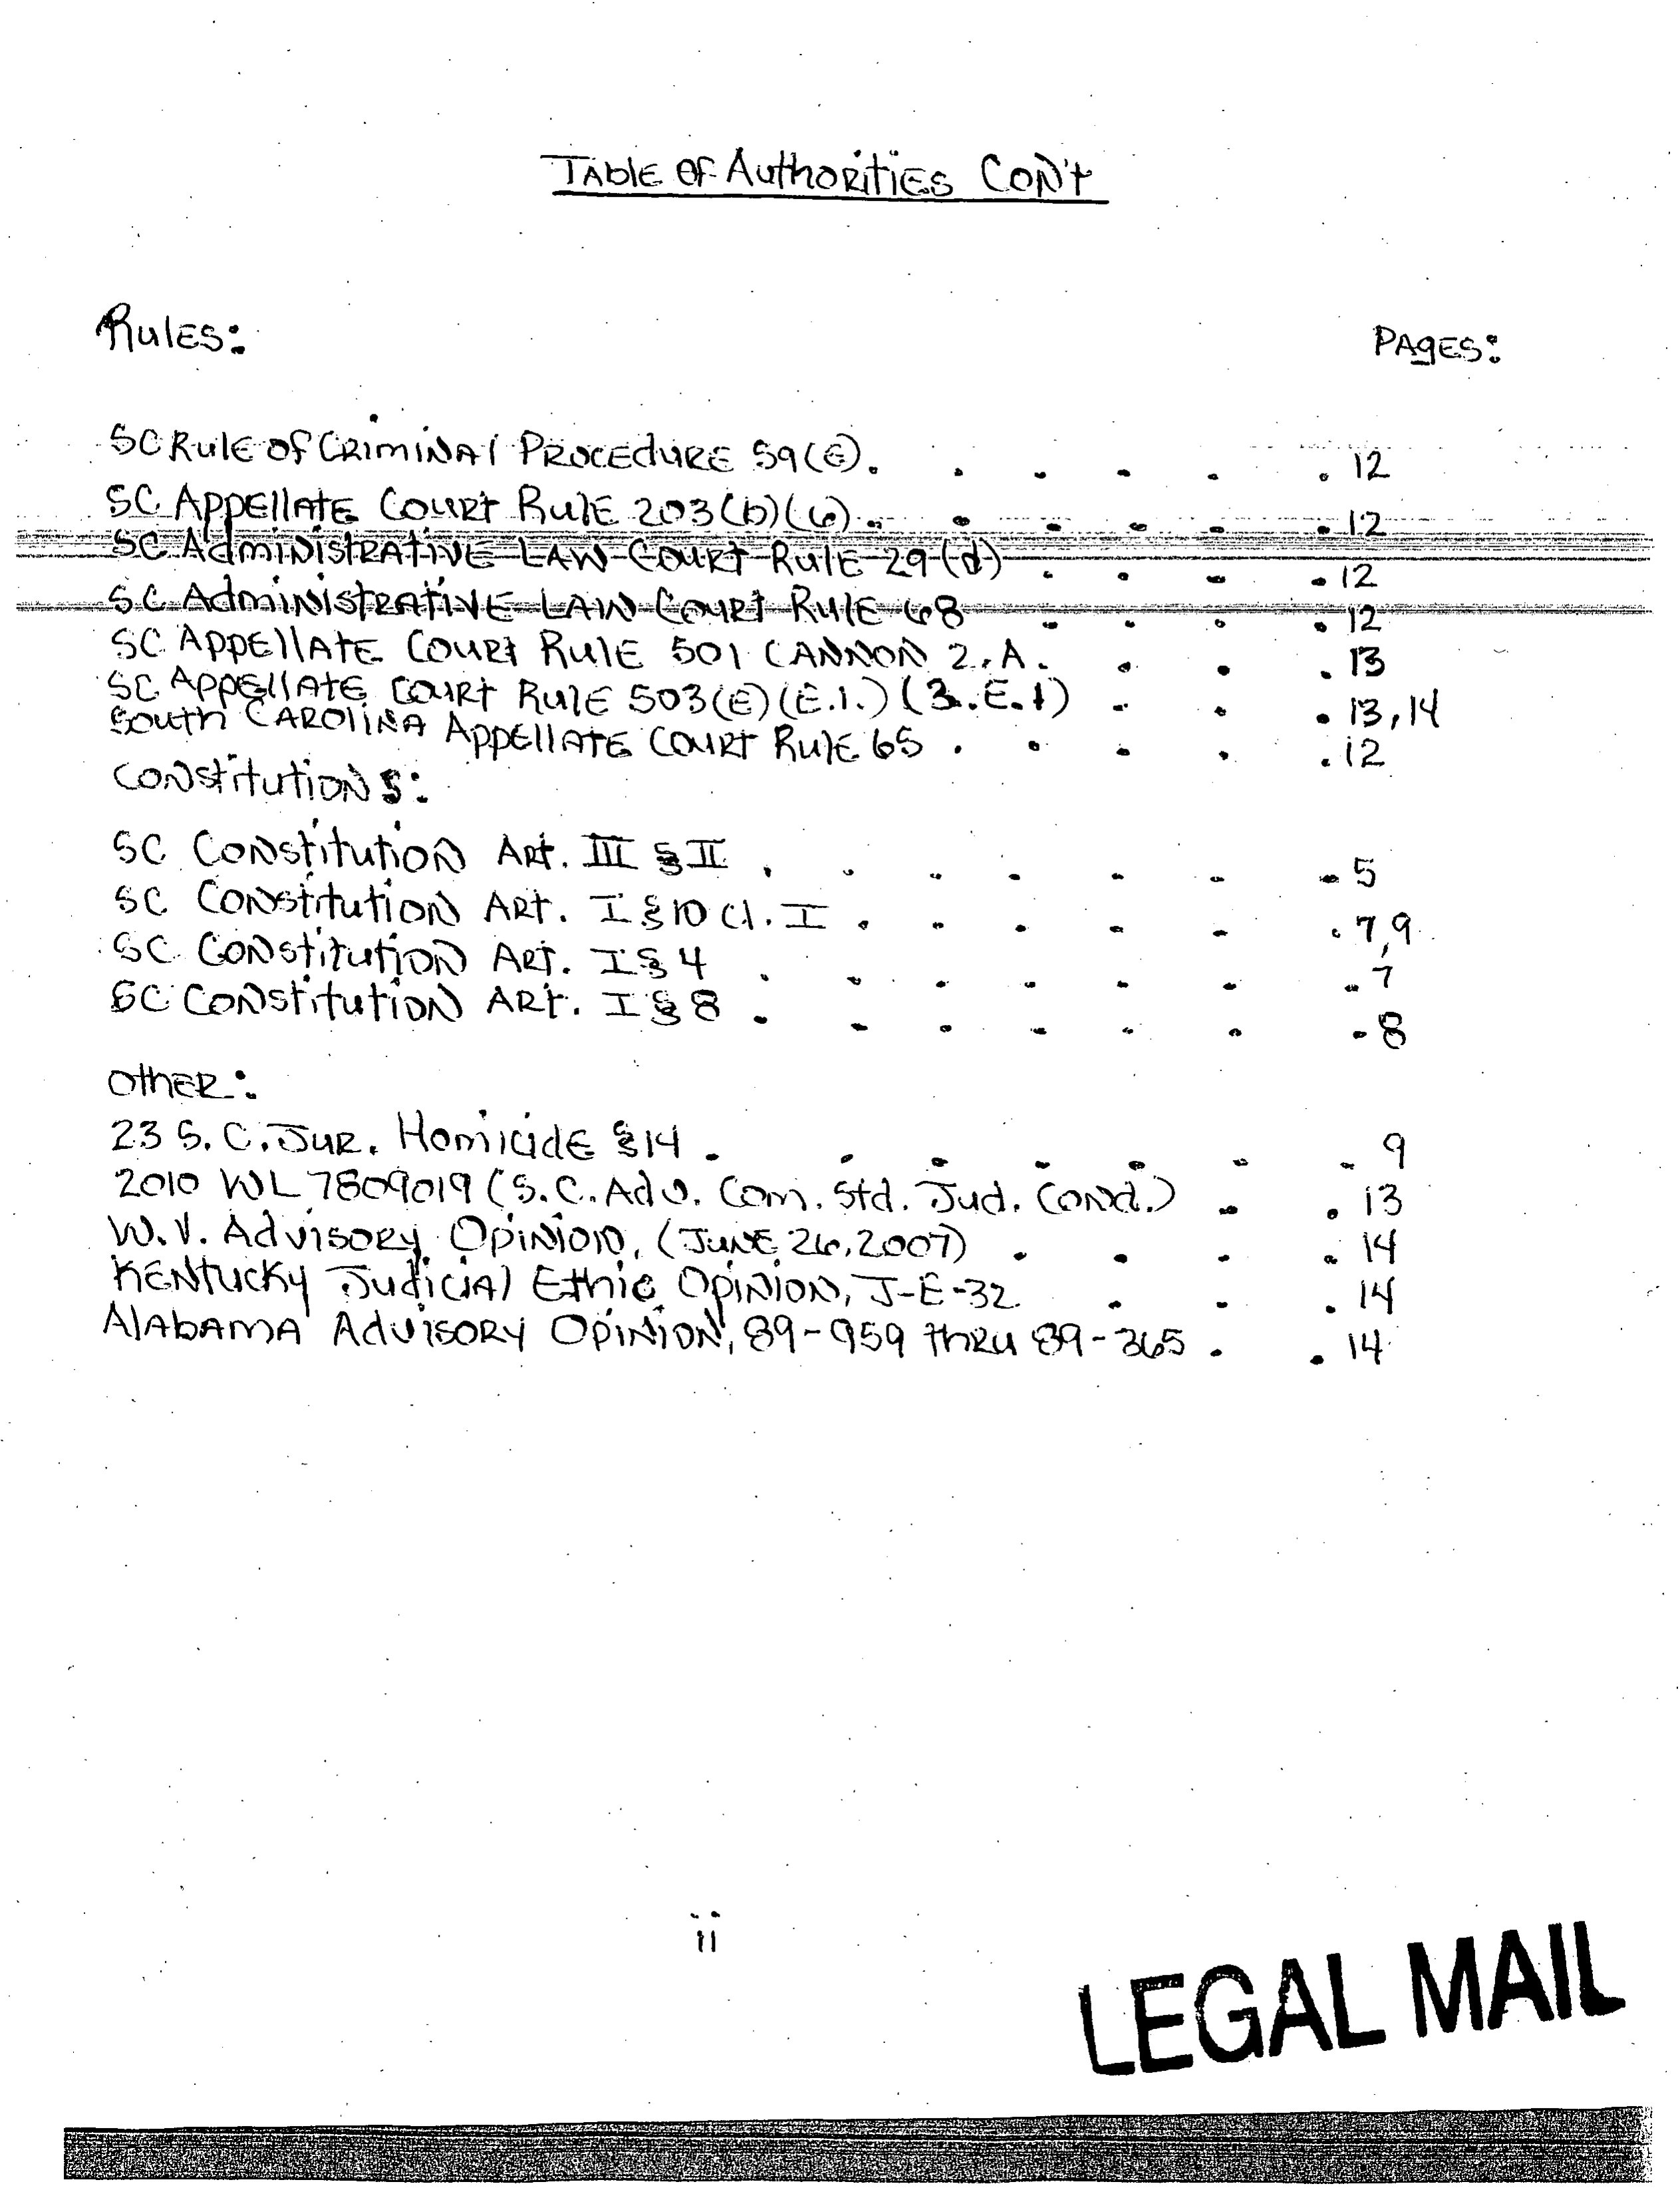 Table of Authorities Con't
Rules:
Pages:
SC Rule of Criminal Procedure 59(E). . . . . . . 12
SC Appellate Court Rule 203(b)(6). . . . . . 12
SC Administrative Law Court Rule 29(d) . . . . 12
SC Administrative Law Court Rule 68 . . . . 12
SC Appellate Court Rule 501 Cannon 2.A. . . . 13
SC Appellate Court Rule 503(E)(E.1.)(3.E.1) . . . 13,14
South Carolina Appellate Court Rule 65 . . . . . 12
Constitutions:
SC Constitution Art. III § II . . . . . . . 5
SC Constitution Art. I § 10 Cl. I . . . . . . 7,9
SC Constitution Art. I § 4 . . . . . . . 7
SC Constitution Art. I § 8 . . . . . . . 8
Other:
23 S.C. Jur. Homicide § 14 . . . . . . . 9
2010 WL 7809019 (S.C. Adv. Com. Std. Jud. Cond.) . . 13
W.V. Advisory Opinion, (June 26, 2007) . . . . 14
Kentucky Judicial Ethic Opinion, J-E-32 . . . 14
Alabama Advisory Opinion, 89-959 thru 89-365 . . 14
ii
LEGAL MAIL